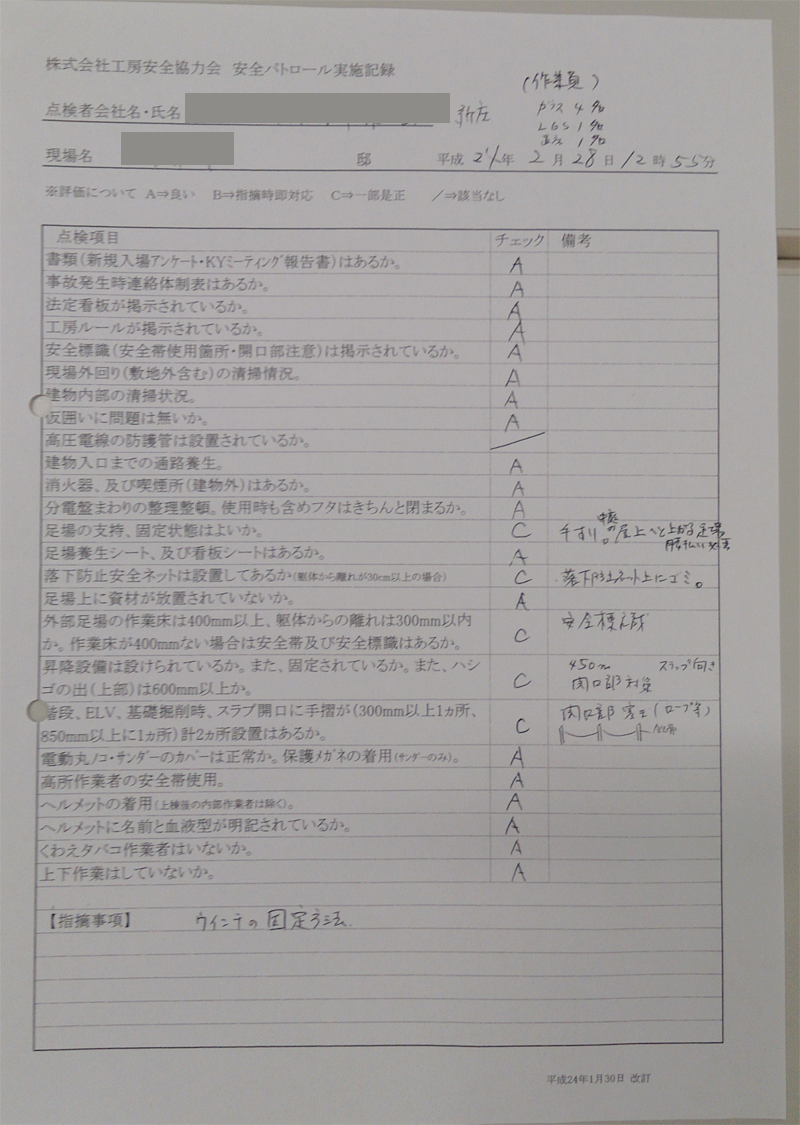 株式会社工房安全協力会 安全パトロール実施記録
(作業員)
点検者会社名・氏名 新庄
ガラス 4名
LGS 1名
1名
現場名 邸 平成 24年 2月 28日 12時 55分
※評価について A⇒良い B⇒指摘時即対応 C⇒一部是正 /⇒該当なし
点検項目 チェック 備考
書類(新規入場アンケート・KYミーティング報告書)はあるか。 A
事故発生時連絡体制表はあるか。 A
法定看板が掲示されているか。 A
工房ルールが掲示されているか。 A
安全標識(安全帯使用箇所・開口部注意)は掲示されているか。 A
現場外回り(敷地外含む)の清掃情況。 A
建物内部の清掃状況。 A
仮囲いに問題は無いか。 A
高圧電線の防護管は設置されているか。 /
建物入口までの通路養生。 A
消火器、及び喫煙所(建物外)はあるか。 A
分電盤まわりの整理整頓。使用時も含めフタはきちんと閉まるか。 A
足場の支持、固定状態はよいか。 C 手すり。屋上へと上がる足場
足場養生シート、及び看板シートはあるか。 A
落下防止安全ネットは設置してあるか(躯体から離れが30cm以上の場合) C 落下防止ネット上にゴミ。
足場上に資材が放置されていないか。 A
外部足場の作業床は400mm以上、躯体からの離れは300mm以内 安全標識
か。作業床が400mmない場合は安全帯及び安全標識はあるか。 C
昇降設備は設けられているか。また、固定されているか。また、ハシ 450m スラブ向き
ゴの出(上部)は600mm以上か。 C 開口部対策
階段、ELV、基礎掘削時、スラブ開口に手摺が(300mm以上1ヵ所、 開口部 (ロープ等)
850mm以上に1ヵ所)計2ヵ所設置はあるか。 C
電動丸ノコ・サンダーのカバーは正常か。保護メガネの着用(サンダーのみ)。 A
高所作業者の安全帯使用。 A
ヘルメットの着用(上棟後の内部作業者は除く)。 A
ヘルメットに名前と血液型が明記されているか。 A
くわえタバコ作業者はいないか。 A
上下作業はしていないか。 A
【指摘事項】 ウインチの固定方法.
平成24年1月30日 改訂